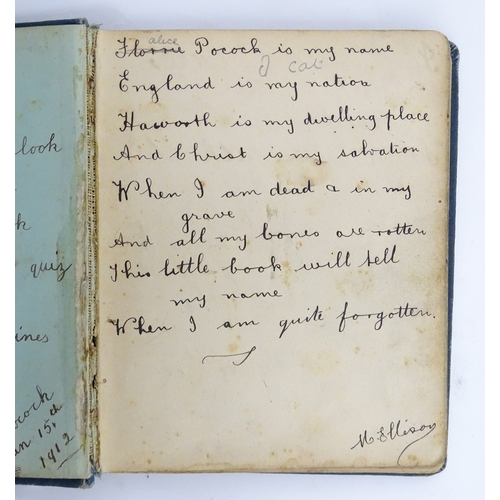 look
k
quiz
ines
ocock
an 15th
1912
alice
Florrie Pocock is my name
J cat
England is my nation
Haworth is my dwelling place
And Christ is my salvation
When I am dead & in my
grave
And all my bones are rotten
This little book will tell
my name
When I am quite forgotten.
M. Ellison